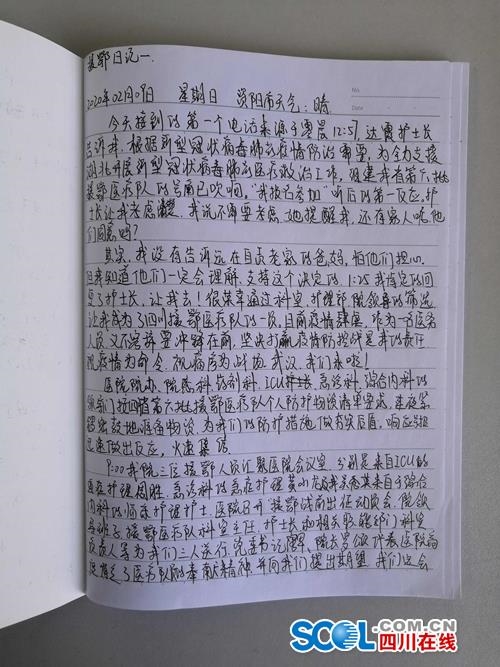 援鄂日记一.
No.
2020年02月09日 星期日 资阳市天气:晴
Date
今天接到的第一个电话来源于零晨12:57, 达霞护士长
告诉我, 根据新型冠状病毒肺炎疫情防治需要, 为全力支援
湖北开展新型冠状病毒肺炎医疗救治工作, 组建我省第六批
援鄂医疗队的号角已吹响, "我报名参加"听后的第一反应, 护
士长让我考虑清楚, 我说不需要考虑. 她提醒我, 还有家人呢, 他
们同意吗?
其实, 我没有告诉远在自贡老家的爸妈, 怕他们担心.
但我知道他们一定会理解, 支持这个决定的 1:25 我肯定的回
复了护士长, 让我去! 很荣幸通过科室、护理部、院领导的筛选
让我成为了四川援鄂医疗队的一员. 目前疫情肆虐, 作为一名医务
人员, 义不容辞要冲锋在前, 坚决打赢疫情防控战是我的责任
视疫情为命令, 视病房为战场, 武汉, 我们来啦!
医院院办、院感科、药剂科、ICU 急诊科、综合内科的
领导们按四川省第六批援鄂医疗队个人防护物资清单要求, 连夜紧
锣密鼓地准备物资, 为我们的防护措施做夯实后盾, 响应号召
迅速做出反应, 火速集结
9:00 我院三位援鄂人员汇聚医院会议室, 分别是来自ICU的
重症护理周胜, 急诊科的急症护理 及我来自于综合
内科的临床护理护士, 医院召开援鄂战前出征动员会, 院领
导班子, 援鄂医疗队科室主任、护士长和相关职能部门科室
负责人等为我们三人送行, 党委书记 院长 代表医院高
度赞扬了医疗队的奉献精神, 并向我们提出期望, 我们定会
SCOL.COM.CN
四川在线